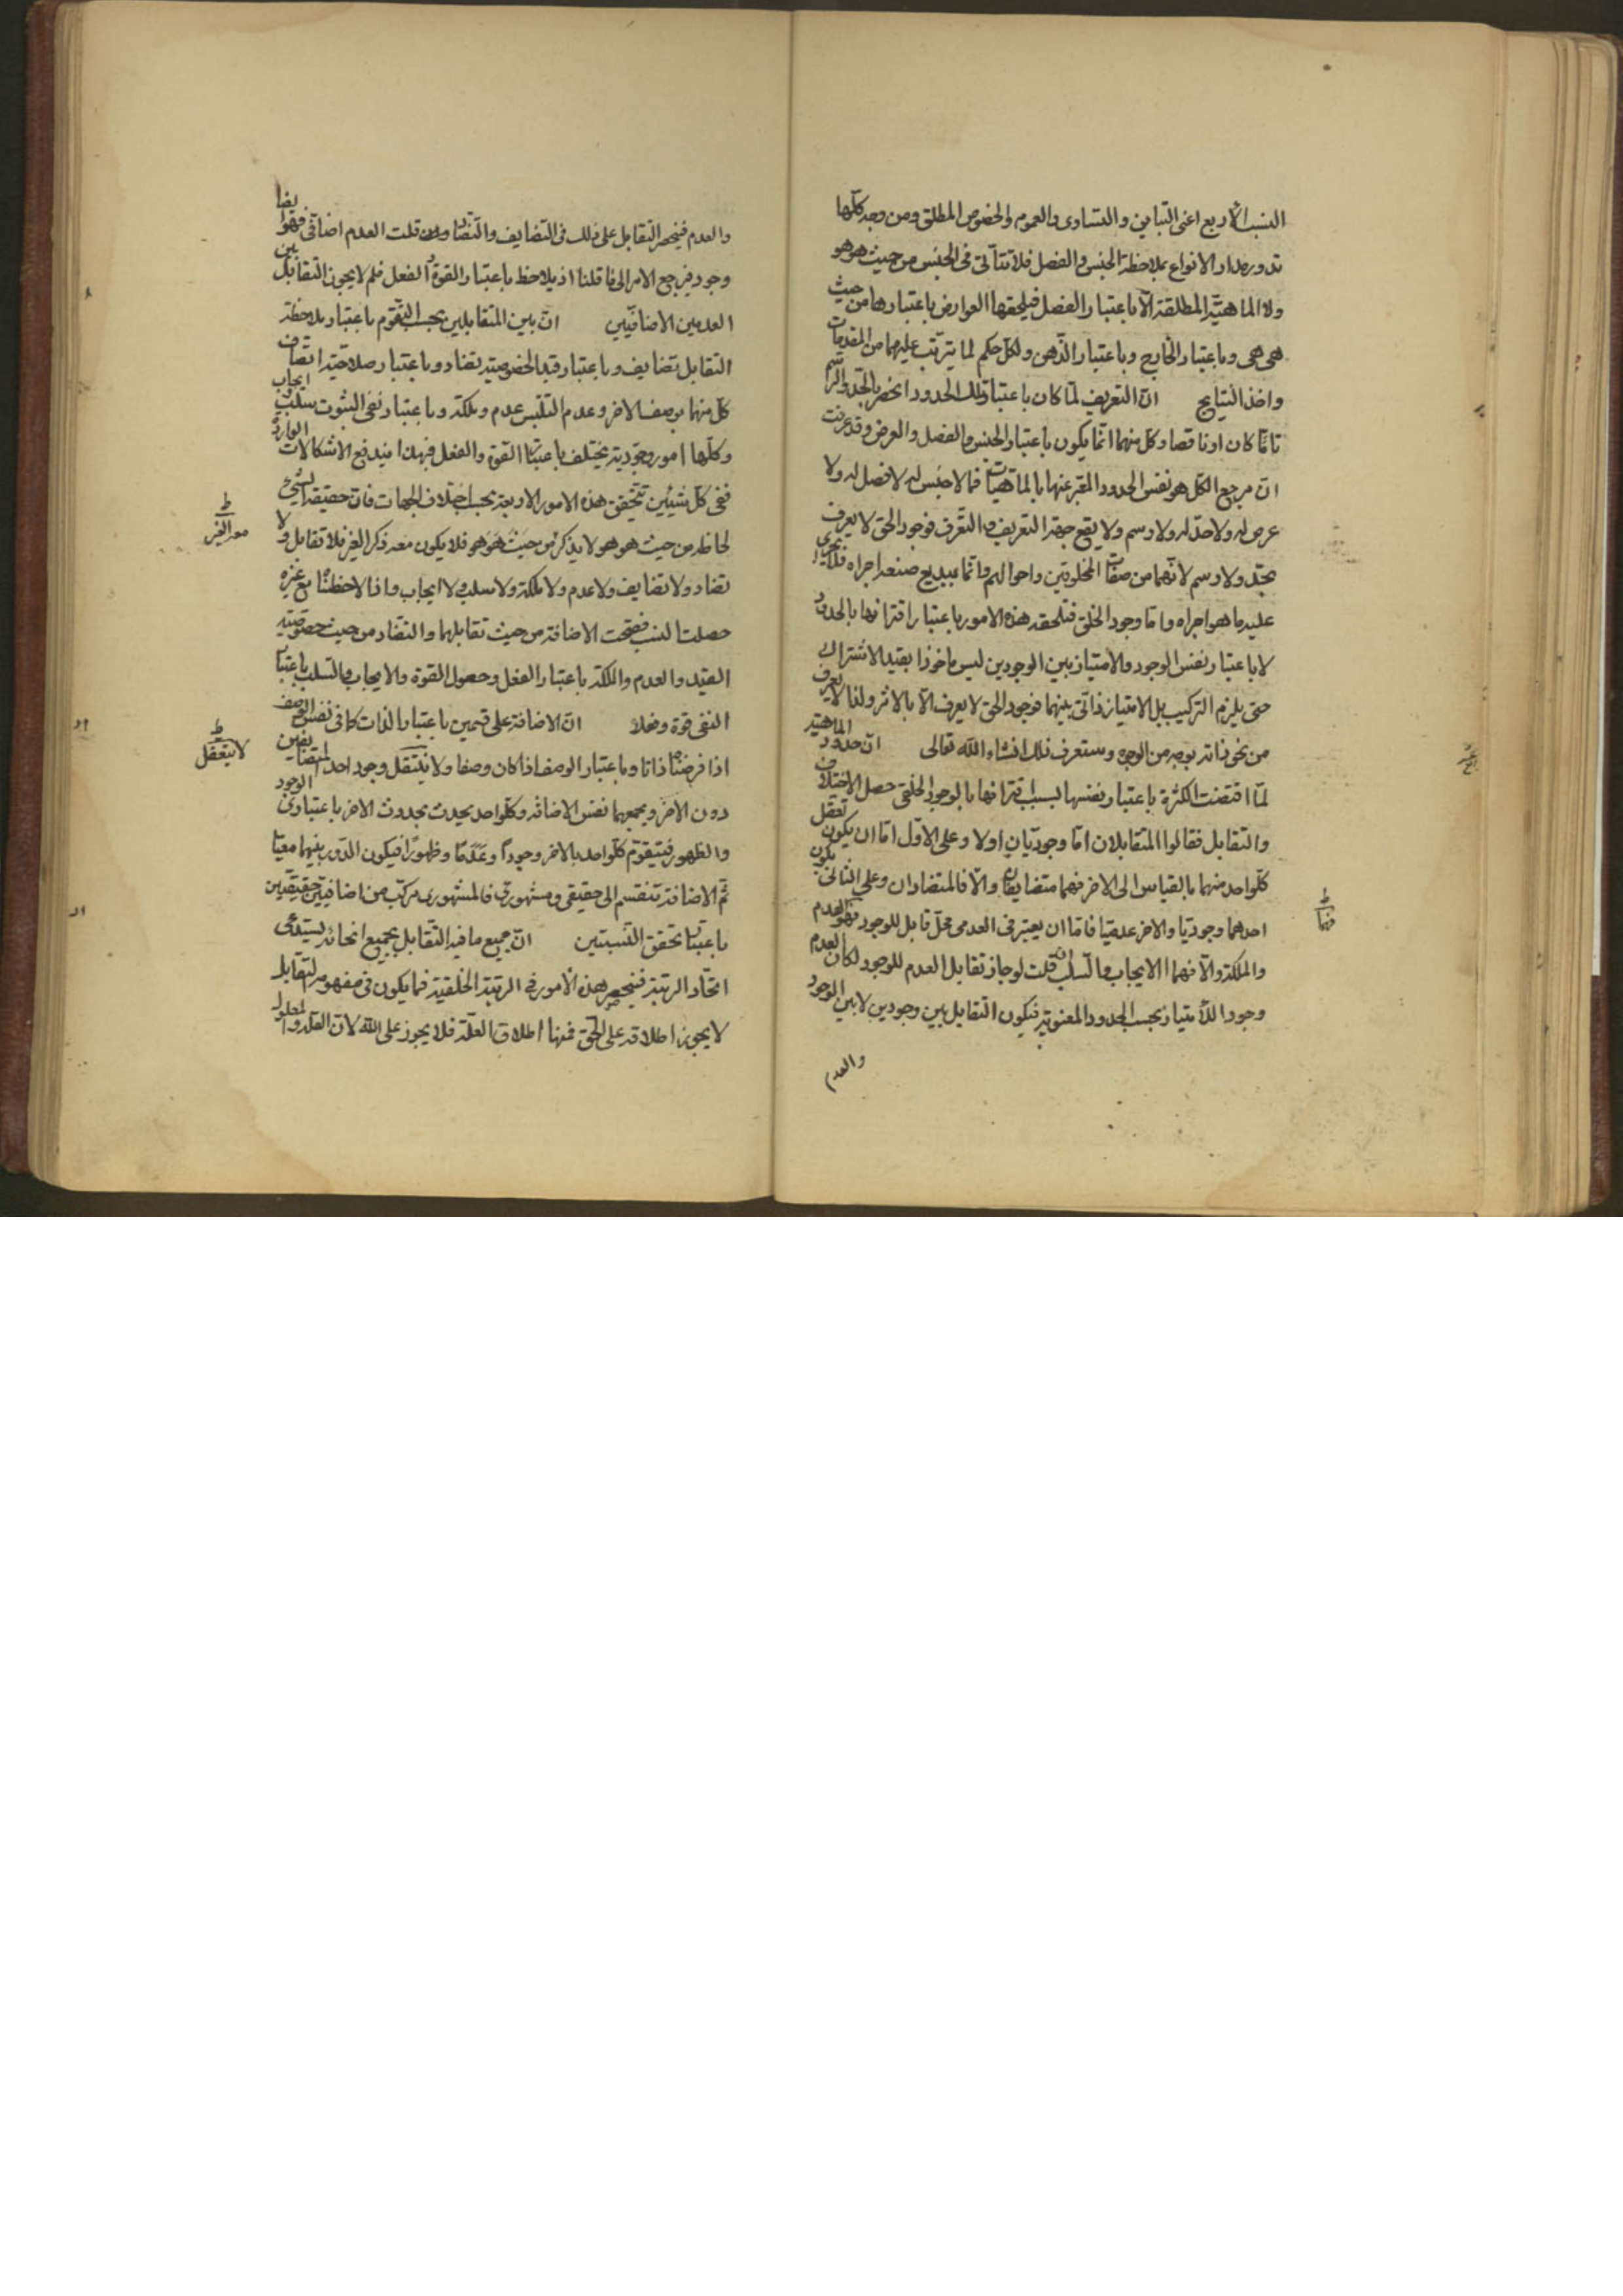 النسب الأربع اعنى التباين والتساوى والعموم والخصوص المطلق ومن وجه كلها
تدور مدار الانواع بملاحظة الجنس والفصل فلا تتأتى فى الجنس من حيث هو هو
ولا الماهية المطلقة الا باعتبار الفصل فيلحقها العوارض باعتبارها من حيث
هى هى وباعتبار الخارج وباعتبار الذهن ولكل حكم لما يترتب عليهما من المقدمات
واخذ النتايج ان التعريف لما كان باعتبار تلك الحدود انحصر بالحد والرسم
تاما كان او ناقصا وكل منهما انما يكون باعتبار الجنس والفصل والعرض وقد عرفت
ان مرجع الكل هو نفس الحدود المعبر عنها بالماهيات فما لا جنس له لا فصل له ولا
عرض له ولا حد له ولا رسم ولا يقع جهة التعريف والتعرف فوجود الحق لا يعرف
بحد ولا رسم لانهما من صفات المخلوقين واحوالهم وانما ببديع صنعه اجراه فلا يجرى
عليه ما هو اجراه واما وجود الخلق فتلحقه هذه الامور باعتبار اقترانها بالحدود
لا باعتبار نفس الوجود والامتياز بين الوجودين ليس ماخوذا بقيد الاشتراك
حتى يلزم التركيب بل الامتياز ذاتى بينهما فوجود الحق لا يعرف الا بالاثر ولذا لا يعرف
من نحو ذاته بوجه من الوجوه وستعرف ذلك انشاء الله تعالى ان حدود الماهية
لما اقتضت الكثرة باعتبار نفسها بسبب اقترانها بالوجود الخلقى حصل الاختلاف
والتقابل فقالوا المتقابلان اما وجوديان اولا وعلى الاول اما ان يكون تعقل
كلواحد منهما بالقياس الى الاخر فهما متضايفان والا فالمتضادان وعلى الثانى يكون
احدهما وجوديا والاخر عدميا فاما ان يعتبر فى العدمى محل قابل للوجود فهو العدم
والملكة والا فهما الايجاب والسلب ان قلت لو جاز تقابل العدم للوجود لكان العدم
وجودا للامتياز بحسب الحدود المعنوية فيكون التقابل بين وجودين لا بين الوجود
والعدم
والعدم فينحصر التقابل على ذلك فى التضايف والتضاد وان قلت العدم اضافى فهو ايضا
وجود فيرجع الامر الى ما قلنا اذ يلاحظ باعتبار القوة والفعل فلم لا يجوز التقابل بين
العدمين الاضافيين ان بين المتقابلين بحسب التقوم باعتبار ملاحظة
التقابل تضايف وباعتبار قيد الخصوصية تضاد وباعتبار صلاحية اتصاف
كل منهما بوصف الاخر وعدم التلبس عدم وملكة وباعتبار نفى الثبوت سلب وايجاب
وكلها امور وجودية يختلف باعتبار القوة والفعل فبهذا يندفع الاشكالات الواردة
ففى كل شيئين تتحقق هذه الامور الاربعة بحسب اختلاف الجهات فان حقيقة الشئ
لحاظه من حيث هو هو لا يذكر من حيث هو هو فلا يكون معه ذكر الغير فلا تقابل ولا
تضاد ولا تضايف ولا عدم ولا ملكة ولا سلب ولا ايجاب واذا لاحظناه مع غيره
حصلت النسب فصحت الاضافة من حيث تقابلهما والتضاد من حيث خصوصية
القيد والعدم والملكة باعتبار الفعل وحصول القوة والايجاب والسلب باعتبار
النفى قوة وفعلا ان الاضافة على قسمين باعتبار الذات كما فى نفس الوصف
اذا فرضناه ذاتا وباعتبار الوصف اذا كان وصفا ولا يتعقل وجود احد المتضايفين
دون الاخر ويجمعهما نفس الاضافة وكلواحد يحدث بحدوث الاخر باعتبارى الوجود
والظهور فيتقوم كلواحد بالاخر وجودا وعدما وظهورا فيكون الدور بينهما معيا
ثم الاضافة تنقسم الى حقيقى ومشهورى فالمشهورى مركب من اضافتين حقيقتين
باعتبار تحقق النسبتين ان جميع ما فيه التقابل بجميع انحائه يستدعى
اتحاد الرتبة فينحصر هذه الامور فى الرتبة الخلقية فما يكون فى مفهومه التقابل
لا يجوز اطلاقه على الحق فمنها اطلاق العلة فلا يجوز على الله لان العلة والمعلول
معه الغير
لا يتعقل